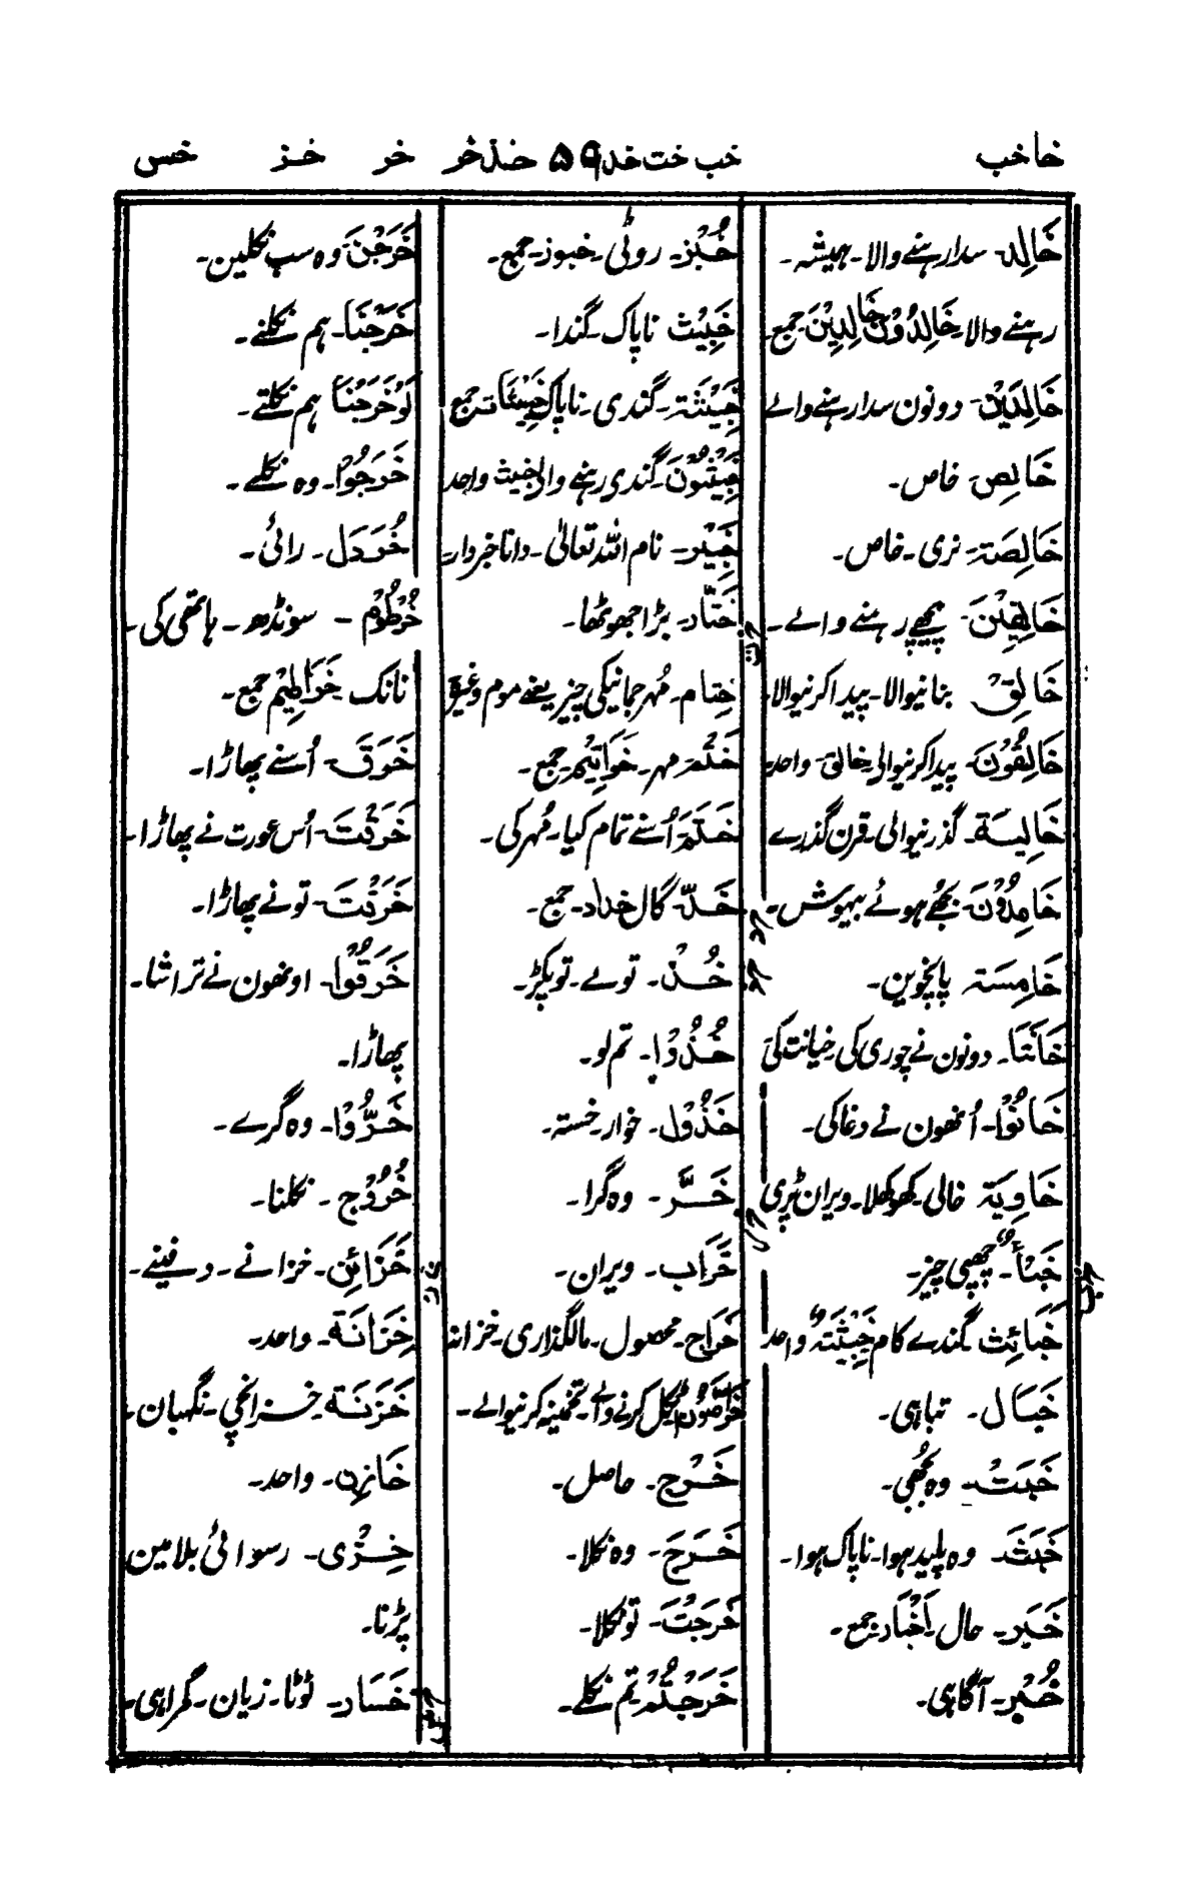 خا خب خب خت خد ۵۹ خذ خر خر خز خس
خَالِد۔ سدا رہنے والا۔ ہمیشہ۔
رہنے والا۔ خَالِدُوْن خَالِدِیْنَ جمع۔
خَالِدَیْن۔ دونون سدا رہنے والے
خَالِص۔ خاص۔
خَالِصَۃ۔ نری۔ خاص۔
خَالِفِیْنَ۔ پیچھے رہنے والے۔
خَالِقْ بنانیوالا۔ پیدا کرنیوالا۔
خَالِقُوْنَ۔ پیدا کرنیوالی۔ خالق۔ واحد۔
خَالِیَۃ۔ گذرنیوالی۔ قرن گذرے
خَامِدُوْنَ۔ بجھے ہوئے بیہوش۔
خَامِسَۃ پانچوین۔
خَانَتَا۔ دونون نے چوری کی خیانت کی
خَانُوْا۔ اُنھون نے دغا کی۔
خَاوِیَۃ خالی۔ کھوکھلا۔ ویران پڑی
خب
خَبْأ۔ چھپی چیز۔
خَبَائِث گندے کام خَبِیْثَۃٌ واحد
خَبَال۔ تباہی۔
خَبَتْ۔ وہ بجھی۔
خَبُثَ۔ وہ پلید ہوا۔ ناپاک ہوا۔
خَبَر۔ حال۔ اَخْبَار جمع۔
خُبْر۔ آگاہی۔
خُبْز۔ روٹی۔ خبوز۔ جمع۔
خَبِیْث ناپاک۔ گندا۔
خَبِیْثَۃ۔ گندی۔ ناپاک خَبِیْثَات جمع
خَبِیْثُوْنَ۔ گندی رہنے والی خبیث واحد
خَبِیْر۔ نام اللہ تعالیٰ۔ دانا خبردار۔
خت
خَتَّار۔ بڑا جھوٹھا۔
خِتَام۔ مُہر جمانیکی چیز یعنے موم وغیرہ
خَتْم۔ مہر۔ خَوَاتِیْم۔ جمع۔
خَتَمَ۔ اُسنے تمام کیا۔ مُہر کی۔
خد
خَدّ۔ گال خداد۔ جمع۔
خذ
خُذْ۔ تولے۔ تو پکڑ۔
خُذُوْا۔ تم لو۔
خَذُوْل۔ خوار۔ خستہ۔
خر
خَرَّ۔ وہ گرا۔
خَرَاب۔ ویران۔
خَرَاج۔ محصول۔ مالگذاری۔ خزانہ
خَرَّاصُوْن۔ اٹکل کرنے والے۔ تخمینہ کرنیوالے۔
خَرْج۔ حاصل۔
خَرَجَ۔ وہ نکلا۔
خَرَجْتَ۔ تو نکلا۔
خَرَجْتُمْ تم نکلے۔
خَرَجْنَ وہ سب نکلین۔
خَرَجْنَا۔ ہم نکلنے۔
لَوْ خَرَجْنَا ہم نکلتے۔
خَرَجُوْا۔ وہ نکلے۔
خُرْدَل۔ رائی۔
خُرْطُوْم۔ سونڈھ۔ ہاتھی کی۔
نانک۔ خَرَاطِیْم جمع۔
خَرَقَ۔ اُسنے پھاڑا۔
خَرَقَتْ۔ اُس عورت نے پھاڑا۔
خَرَقْتَ۔ تونے پھاڑا۔
خَرَقُوْا۔ اونھون نے تراشا۔
پھاڑا۔
خَرُّوْا۔ وہ گرے۔
خُرُوْج۔ نکلنا۔
خز
خَزَائِن۔ خزانے۔ دفینے۔
خِزَانَۃ۔ واحد۔
خَزَنَۃ۔ خزانچی۔ نگہبان۔
خَازِن۔ واحد۔
خِزْی۔ رسوائی بلا مین
پڑنا۔
خس
خَسَار۔ ٹوٹا۔ زیان۔ گمراہی۔